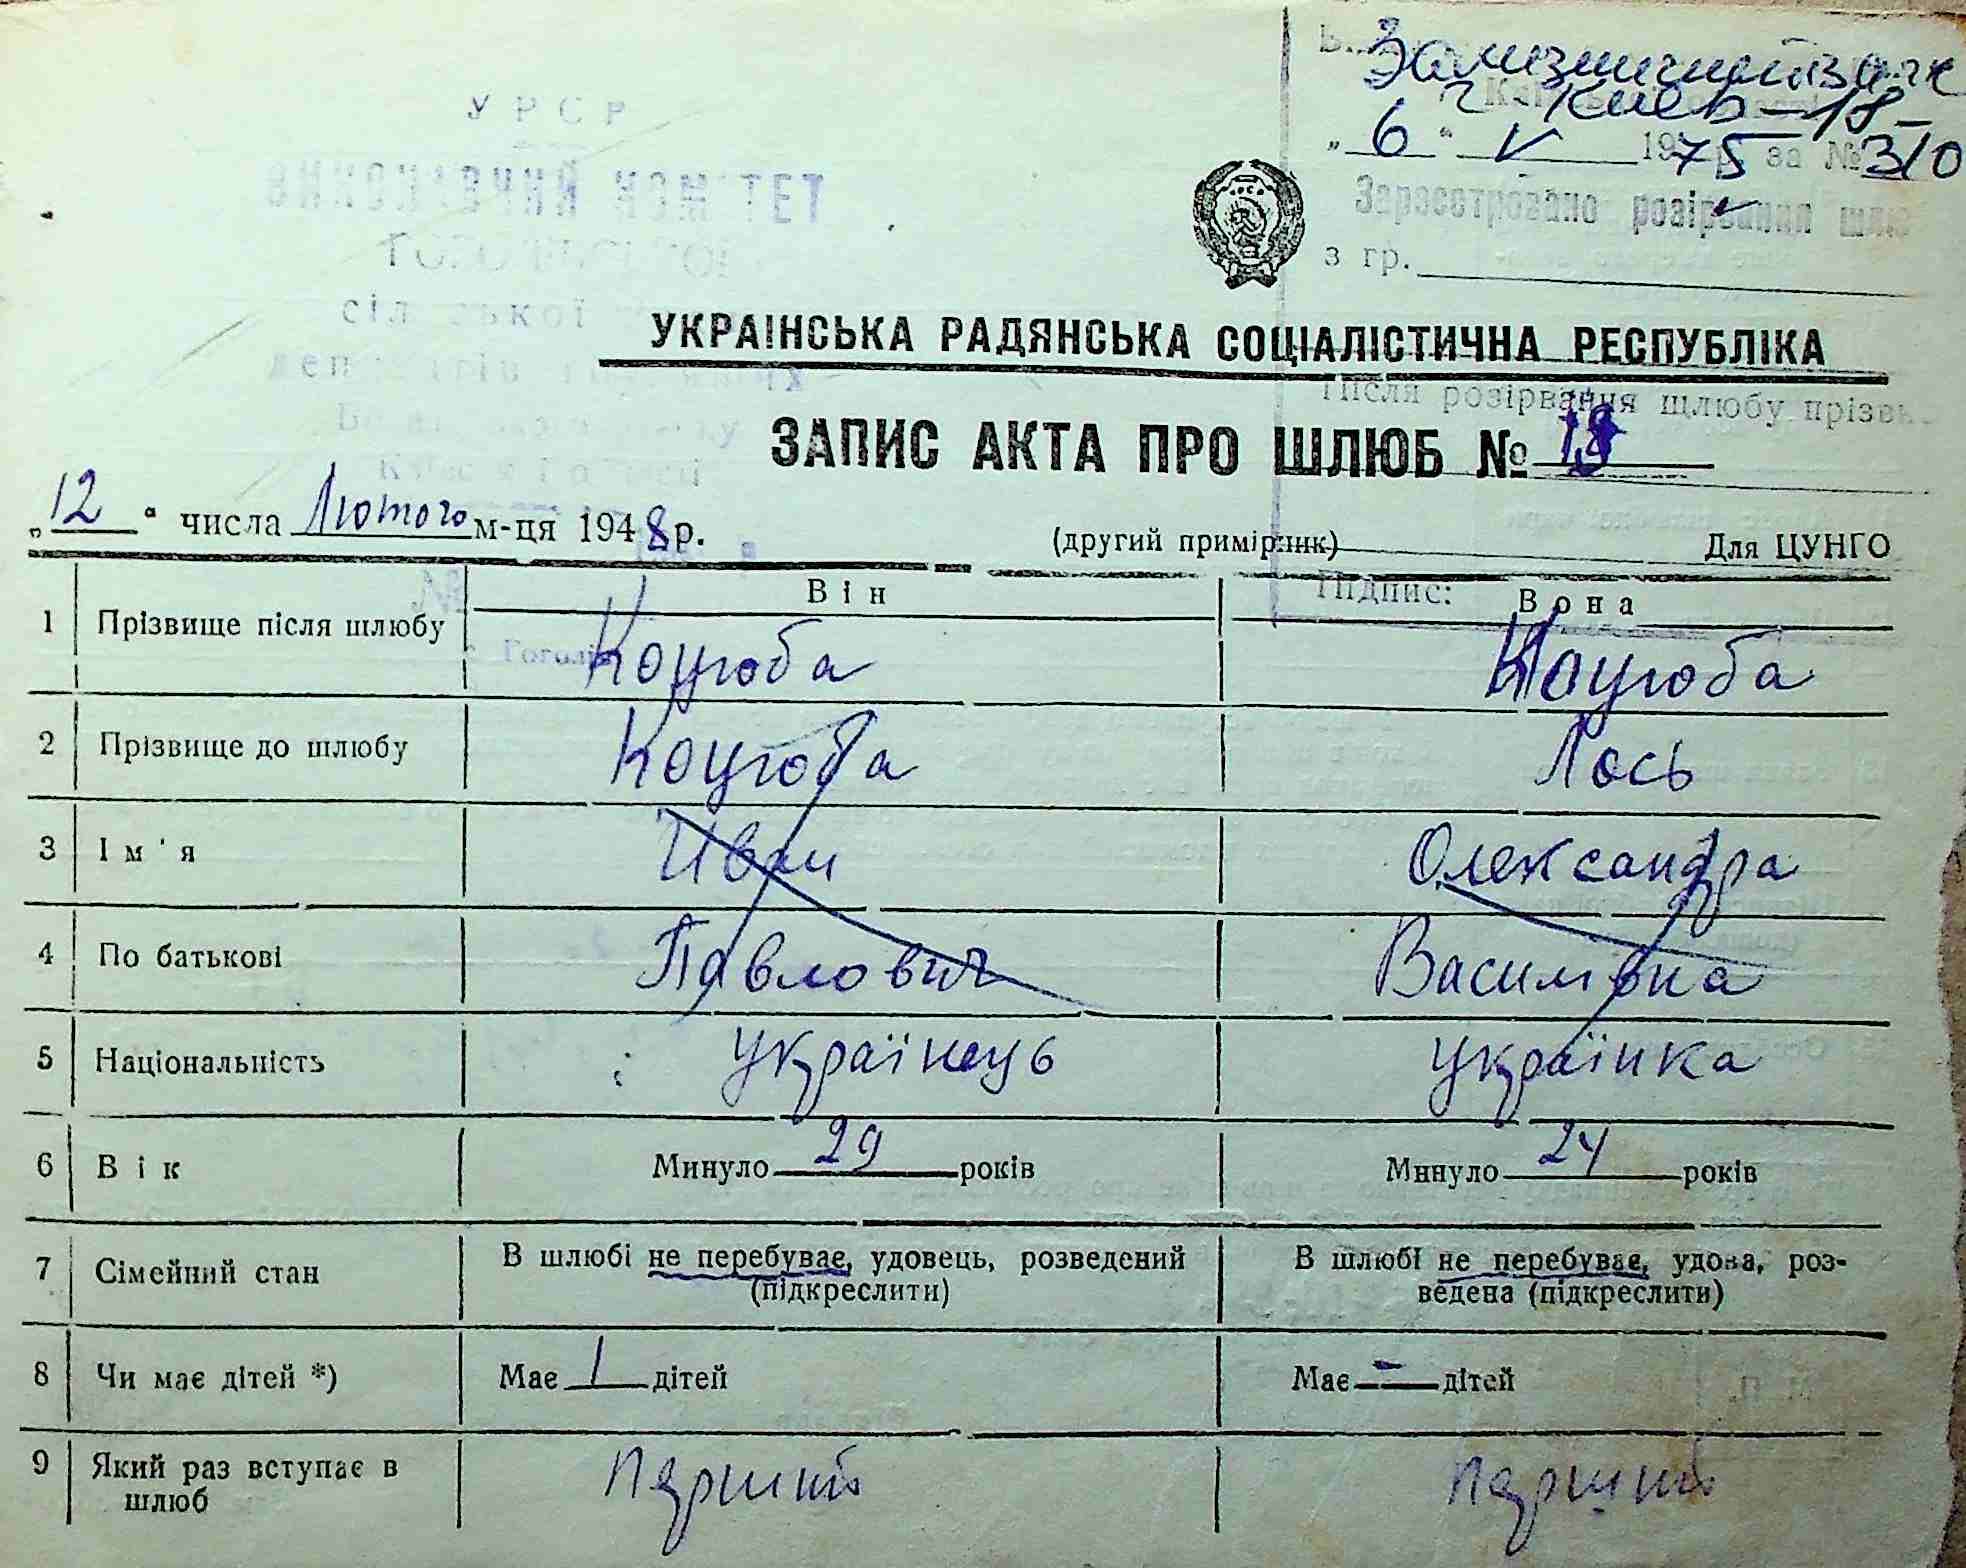 УРСР
ВИКОНАВЧИЙ КОМІТЕТ
сільської
Зализничный загс
г Киев-18-
„6“ V 1975 р. за № 310
Зареєстровано розірвання шлюбу
з гр.
УКРАЇНСЬКА РАДЯНСЬКА СОЦІАЛІСТИЧНА РЕСПУБЛІКА
Після розірвання шлюбу прізв
ЗАПИС АКТА ПРО ШЛЮБ № 18
„12“ числа Лютого м-ця 1948 р.
(другий примірник) Для ЦУНГО
Підпис:
Він Вона
1 Прізвище після шлюбу Коцюба Коцюба
2 Прізвище до шлюбу Коцюба Лось
3 Ім'я Иван Олександра
4 По батькові Павлович Василівна
5 Національність українець українка
6 Вік Минуло 29 років Минуло 24 років
7 Сімейний стан В шлюбі не перебуває, удовець, розведений (підкреслити) В шлюбі не перебуває, удова, роз-
ведена (підкреслити)
8 Чи має дітей *) Має 1 дітей Має - дітей
9 Який раз вступає в
шлюб Перший Перший